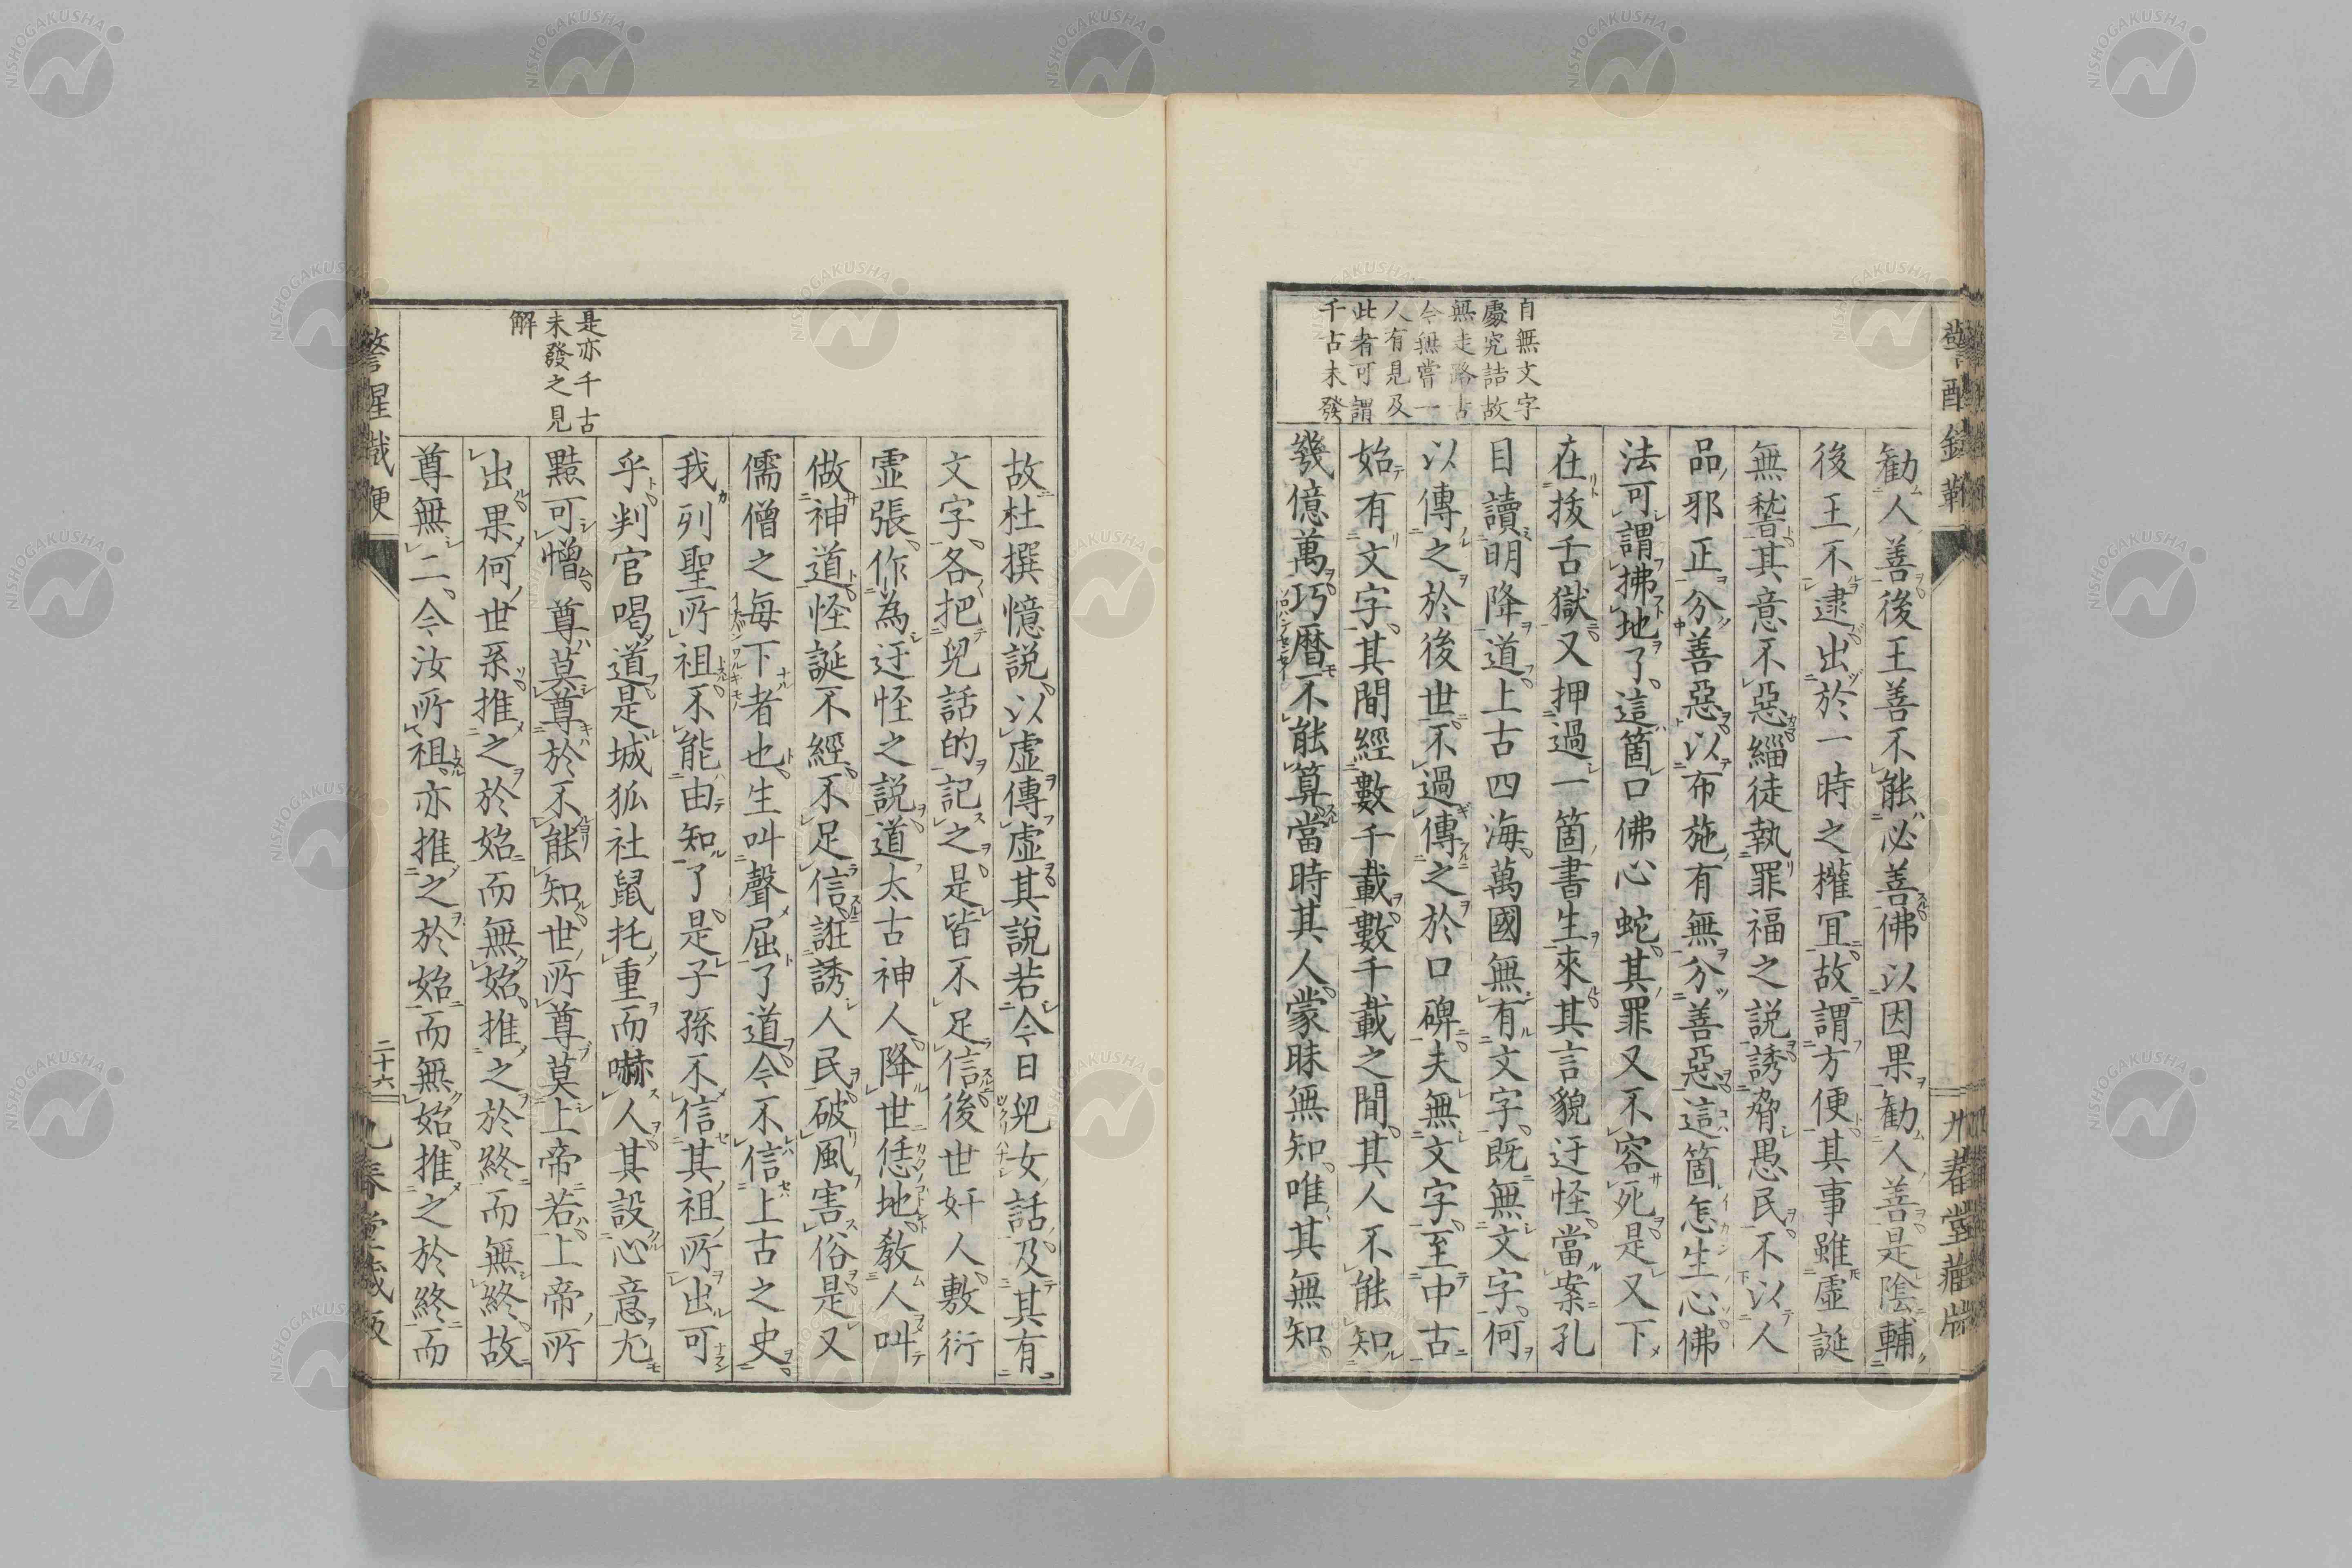 自無文字
處究詰故
無走路古
今無嘗一
人有見及
此者可謂
千古未發
勸人善後王善不能必善佛以因果勸人善是陰輔
後王不逮出於一時之權宜故謂方便其事雖虛誕
無稽其意不惡緇徒執罪福之說誘脅愚民不以人
品邪正分善惡以布施有無分善惡這箇怎生心佛
法可謂拂地了這箇口佛心蛇其罪又不容死是又下
在拔舌獄又押過一箇書生來其言貌迂怪當案孔
目讀明降道上古四海萬國無有文字既無文字何
以傳之於後世不過傳之於口碑夫無文字至中古
始有文字其間經數千載數千載之間其人不能知
幾億萬巧曆不能算當時其人蒙昧無知唯其無知
是亦千古
未發之見
解
故杜撰憶説以虛傳虛其說若今日兒女話及其有
文字各把兒話的記之是皆不足信後世奸人敷衍
虛張作為迂怪之說道太古神人降世恁地教人叫
做神道怪誕不經不足信誑誘人民破風害俗是又
儒僧之每下者也生叫聲屈了道今不信上古之史
我列聖所祖不能由知了是子孫不信其祖所出可
乎判官喝道是城狐社鼠托重而嚇人其設心意尤
黠可憎尊莫尊於不能知世所尊莫上帝若上帝所
出果何世系推之於始而無始推之於終而無終故
尊無二今汝所祖亦推之於始而無始推之於終而
二十六